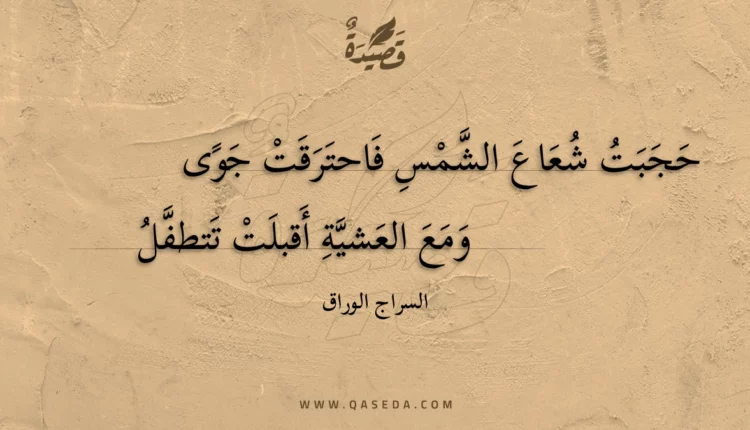 قَصِيدَةٌ
حَجَبَتُ شُعَاعَ الشَّمْسِ فَاحتَرَقَتْ جَوًى
وَمَعَ العَشيَّةِ أَقبلَتْ تَتطفَّلُ
السراج الوراق
WWW.QASEDA.COM